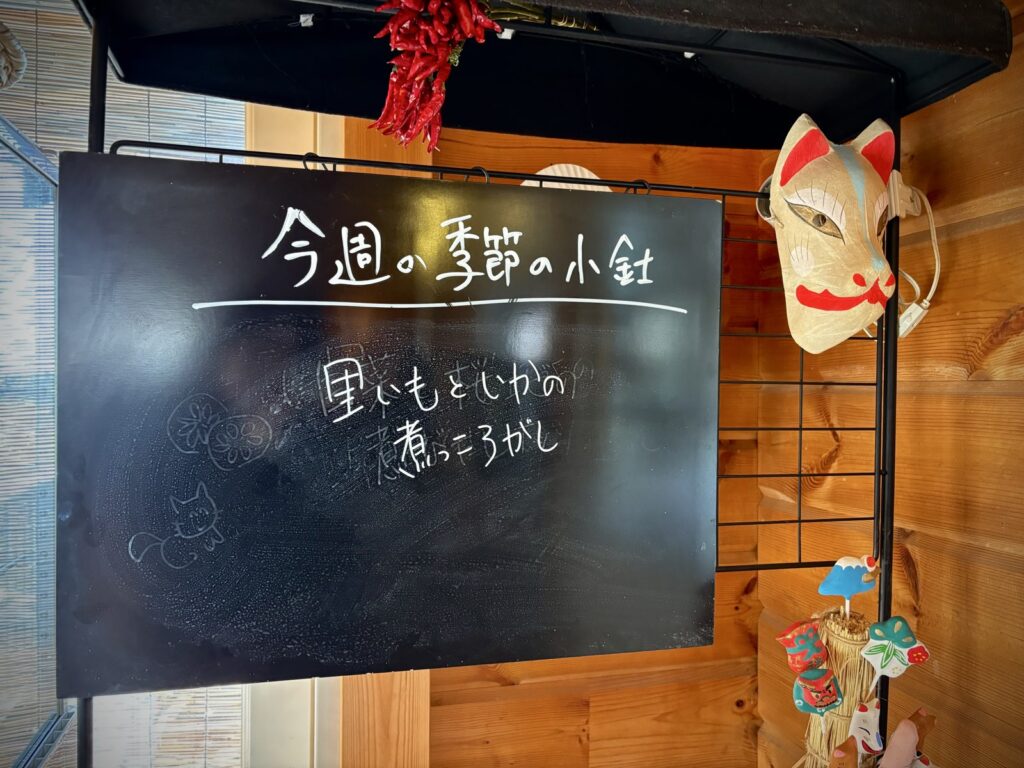 今週の季節の小鉢
里いもといかの
煮っころがし